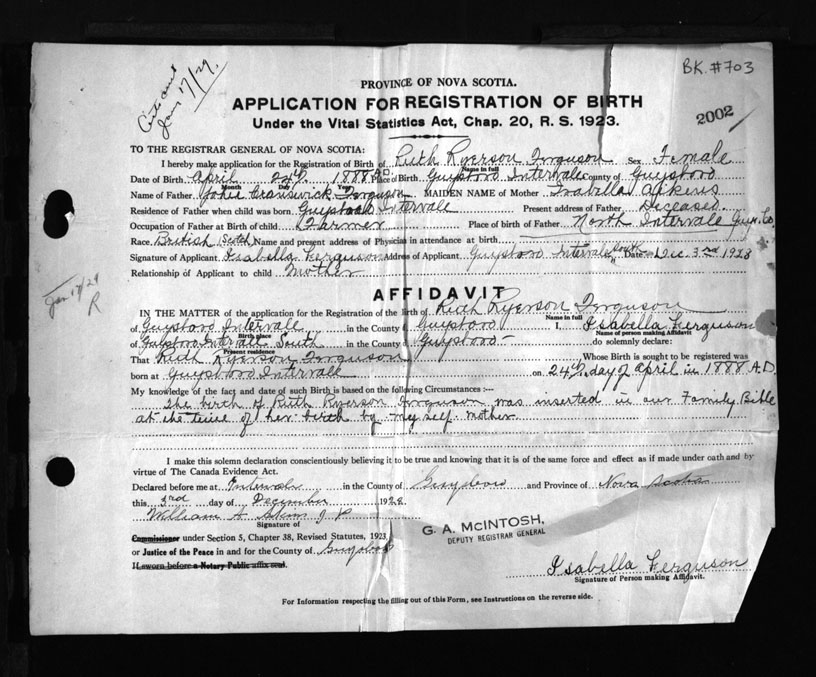 BK. #703
Jan 17/29
2002
PROVINCE OF NOVA SCOTIA.
APPLICATION FOR REGISTRATION OF BIRTH
Under the Vital Statistics Act, Chap. 20, R. S. 1923.
TO THE REGISTRAR GENERAL OF NOVA SCOTIA:
I hereby make application for the Registration of Birth of Ruth Ryerson Ferguson Sex Female
Name in full
Date of Birth April 24th 1888 A.D. Place of Birth Guysboro Intervale County of Guysboro
Month Day Year
Name of Father Ferguson MAIDEN NAME of Mother Isabella Aikins
Residence of Father when child was born Guysboro Intervale Present address of Father Deceased
Occupation of Father at Birth of child Farmer Place of birth of Father North Intervale Guys. Co.
Race British (Scotch) Name and present address of Physician in attendance at birth
Signature of Applicant Isabella Ferguson Address of Applicant Guysboro Intervale South Date Dec 3rd 1928
Relationship of Applicant to child Mother
Jan 17/29
R
AFFIDAVIT
IN THE MATTER of the application for the Registration of the birth of Ruth Ryerson Ferguson
Name in full
of Guysboro Intervale in the County of Guysboro I, Isabella Ferguson
Birth place Name of person making Affidavit
of Guysboro Intervale South of Guysboro do solemnly declare:
Present residence
That Ruth Ryerson Ferguson Whose Birth is sought to be registered was
born at Guysboro Intervale on 24th day of April in 1888 A.D.
My knowledge of the fact and date of such Birth is based on the following Circumstances :—
The birth of Ruth Ryerson Ferguson was inserted in our Family Bible
at the time of her birth by my self. Mother
I make this solemn declaration conscientiously believing it to be true and knowing that it is of the same force and effect as if made under oath and by
virtue of The Canada Evidence Act.
Declared before me at Intervale in the County of Guysboro and Province of Nova Scotia
this 3rd day of December 1928.
William A J P
Signature of
G. A. McINTOSH,
DEPUTY REGISTRAR GENERAL
Commissioner under Section 5, Chapter 38, Revised Statutes, 1923,
or Justice of the Peace in and for the County of Guysboro
If sworn before a Notary Public affix seal.
Isabella Ferguson
Signature of Person making Affidavit.
For Information respecting the filling out of this Form, see Instructions on the reverse side.